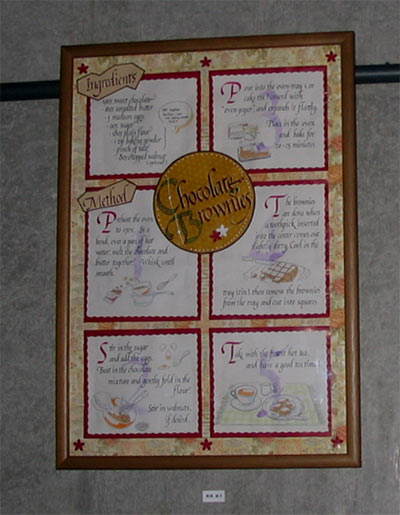 Ingredients
60g sweet chocolate
60g unsalted butter
2 medium eggs
90g sugar
60g plain flour
1 tsp baking powder
pinch of salt
80g chopped walnut
(optional)
Pour into the oven-tray or
cake tin lined with
"oven paper", and expand it flatly.
Place in the oven
and bake for
20-25 minutes.
Chocolate
Brownies
Method
Preheat the oven
to 170°C. In a
bowl, over a pan of hot
water, melt the chocolate and
butter together. Whisk until
smooth.
The brownies
are done when
a toothpick inserted
into the center comes out
slightly dirty. Cool in the
tray (tin), then remove the brownies
from the tray and cut into squares.
Stir in the sugar
and add the eggs.
Beat in the chocolate
mixture and gently fold in the
flour.
Stir in walnuts,
if desired.
Take with the flavor hot tea,
and have a good tea time.